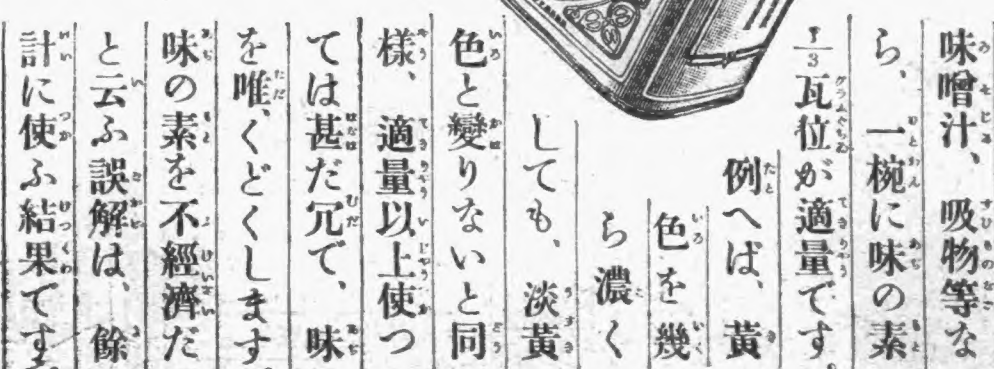 味噌汁、吸物等な
ら、一椀に味の素
1/3瓦位が適量です。
例へば、黃
色を幾
ら濃く
しても、淡黃
色と變りないと同
樣、適量以上使つ
ては甚だ冗で、味
を唯、くどくします。
味の素を不經濟だ
と云ふ誤解は、餘
計に使ふ結果です。